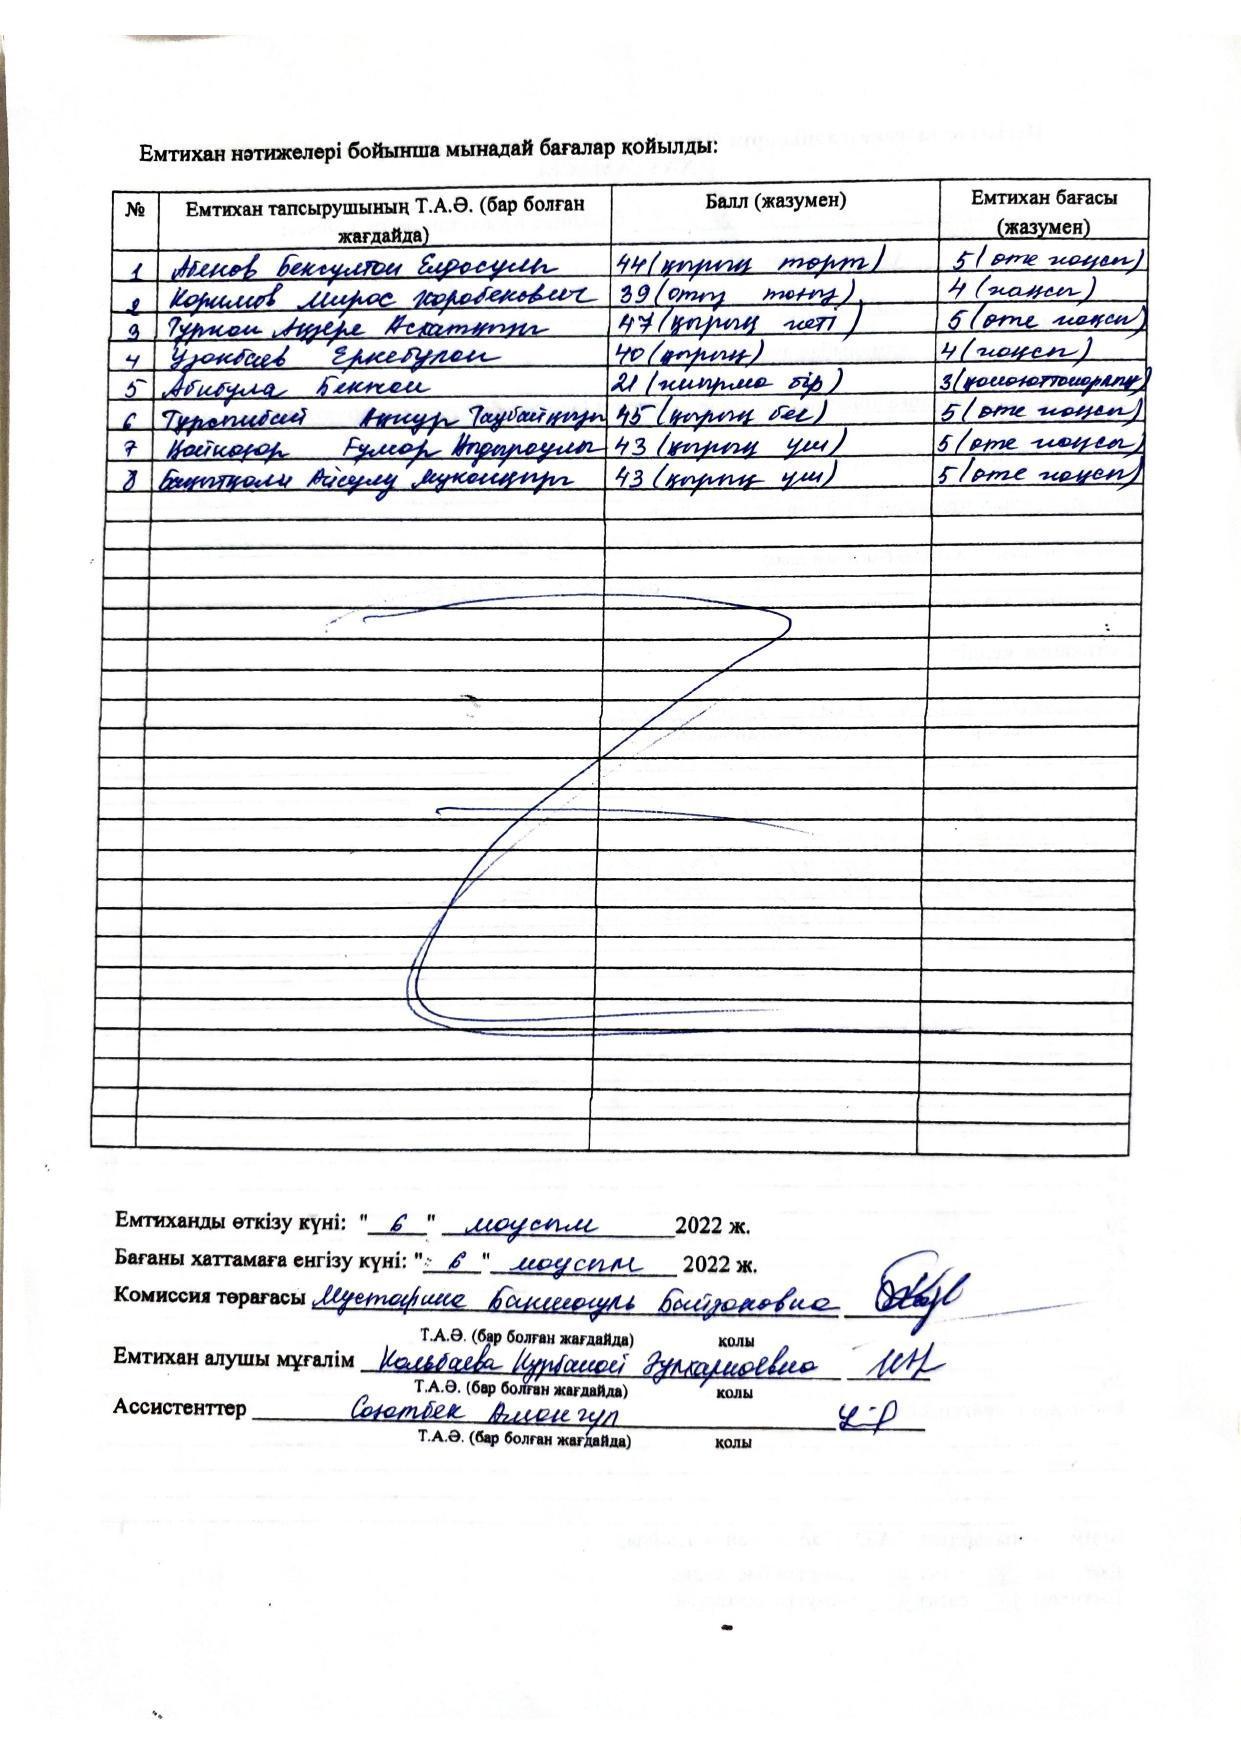 Емтихан нәтижелері бойынша мынадай бағалар қойылды:
№ Емтихан тапсырушының Т.А.Ә. (бар болған жағдайда) Балл (жазумен) Емтихан бағасы (жазумен)
1 Абенов Бексултан Елдосулы 44 (қырық төрт) 5 (өте жақсы)
2 Каримов Мирас Жарабекович 39 (отыз тоғыз) 4 (жақсы)
3 Турхан Аңсере Асхатқызы 47 (қырық жеті) 5 (өте жақсы)
4 Узакбаев Еркебулан 40 (қырық) 4 (жақсы)
5 Абибула Бекжан 21 (жиырма бір) 3 (қанағаттанарлық)
6 Турсынбай Ақнұр Таубайқызы 45 (қырық бес) 5 (өте жақсы)
7 Ғумар 43 (қырық үш) 5 (өте жақсы)
8 Бақытқали Айсулу Муканқызы 43 (қырық үш) 5 (өте жақсы)
Емтиханды өткізу күні: "6" маусым 2022 ж.
Бағаны хаттамаға енгізу күні: "6" маусым 2022 ж.
Комиссия төрағасы Мустафина Бакшагуль Байзаковна
Т.А.Ә. (бар болған жағдайда) қолы
Емтихан алушы мұғалім Кольбаева Курбанай Зулхарнаевна
Т.А.Ә. (бар болған жағдайда) қолы
Ассистенттер Саятбек Амангул
Т.А.Ә. (бар болған жағдайда) қолы